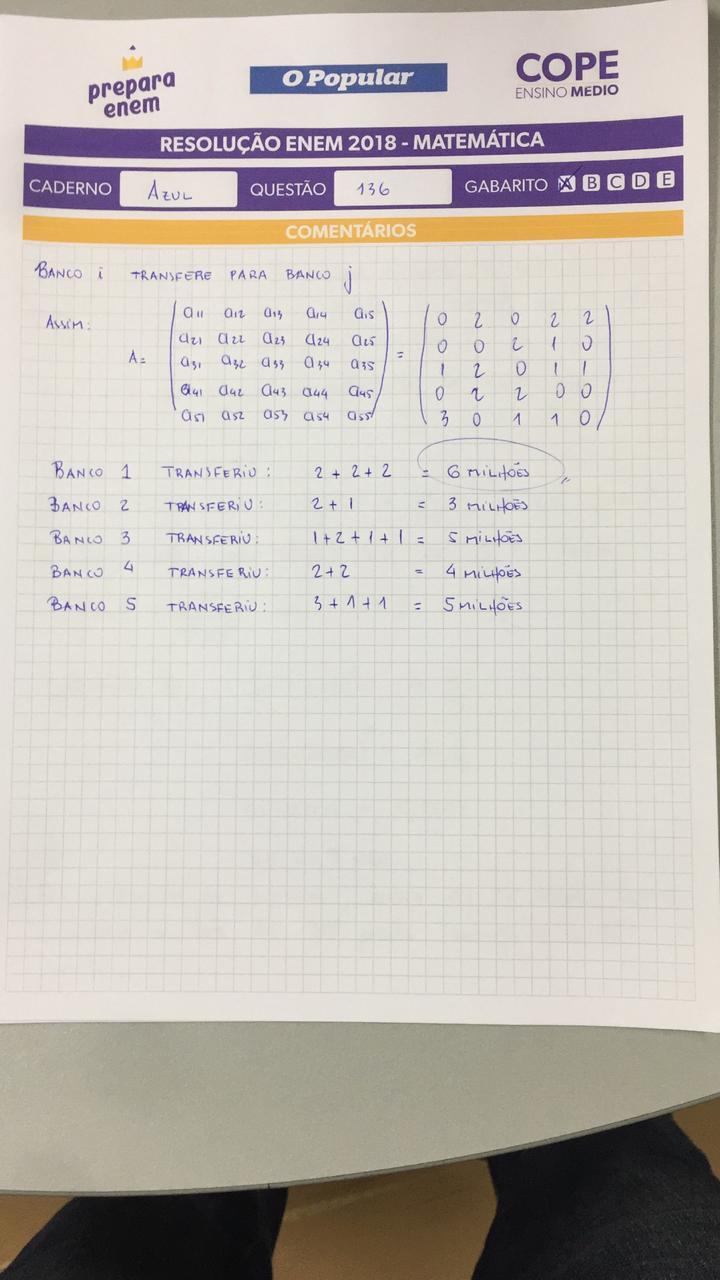 prepara enem
O Popular
COPE
ENSINO MÉDIO
RESOLUÇÃO ENEM 2018 - MATEMÁTICA
CADERNO AZUL QUESTÃO 136 GABARITO A B C D E
COMENTÁRIOS
BANCO i TRANSFERE PARA BANCO j
ASSIM:
A= a11 a12 a13 a14 a15 = 0 2 0 2 2
a21 a22 a23 a24 a25 0 0 2 1 0
a31 a32 a33 a34 a35 1 2 0 1 1
a41 a42 a43 a44 a45 0 2 2 0 0
a51 a52 a53 a54 a55 3 0 1 1 0
BANCO 1 TRANSFERIU: 2 + 2 + 2 = 6 MILHÕES
BANCO 2 TRANSFERIU: 2 + 1 = 3 MILHÕES
BANCO 3 TRANSFERIU: 1+2+1+1 = 5 MILHÕES
BANCO 4 TRANSFERIU: 2+2 = 4 MILHÕES
BANCO 5 TRANSFERIU: 3+1+1 = 5 MILHÕES